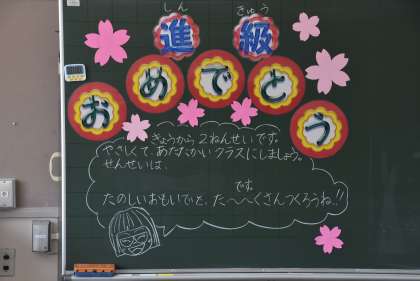 しん きゅう
進級
おめでとう
きょうから2ねんせいです。
やさしくて、あたたかいクラスにしましょう。
せんせいは、
です。
たのしいおもいでを、た〜〜くさんつくろうね!!